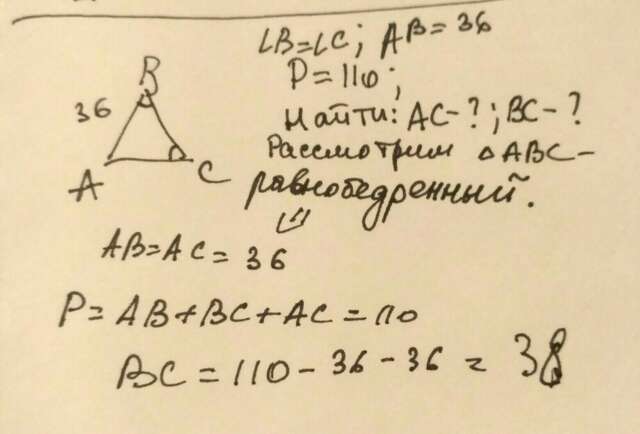 ∠B=∠C; AB=36
P=110;
Найти: AC-?; BC-?
Рассмотрим △ABC-
равнобедренный.
B
36
A
C
⇓
AB=AC=36
P=AB+BC+AC=110
BC=110-36-36=38